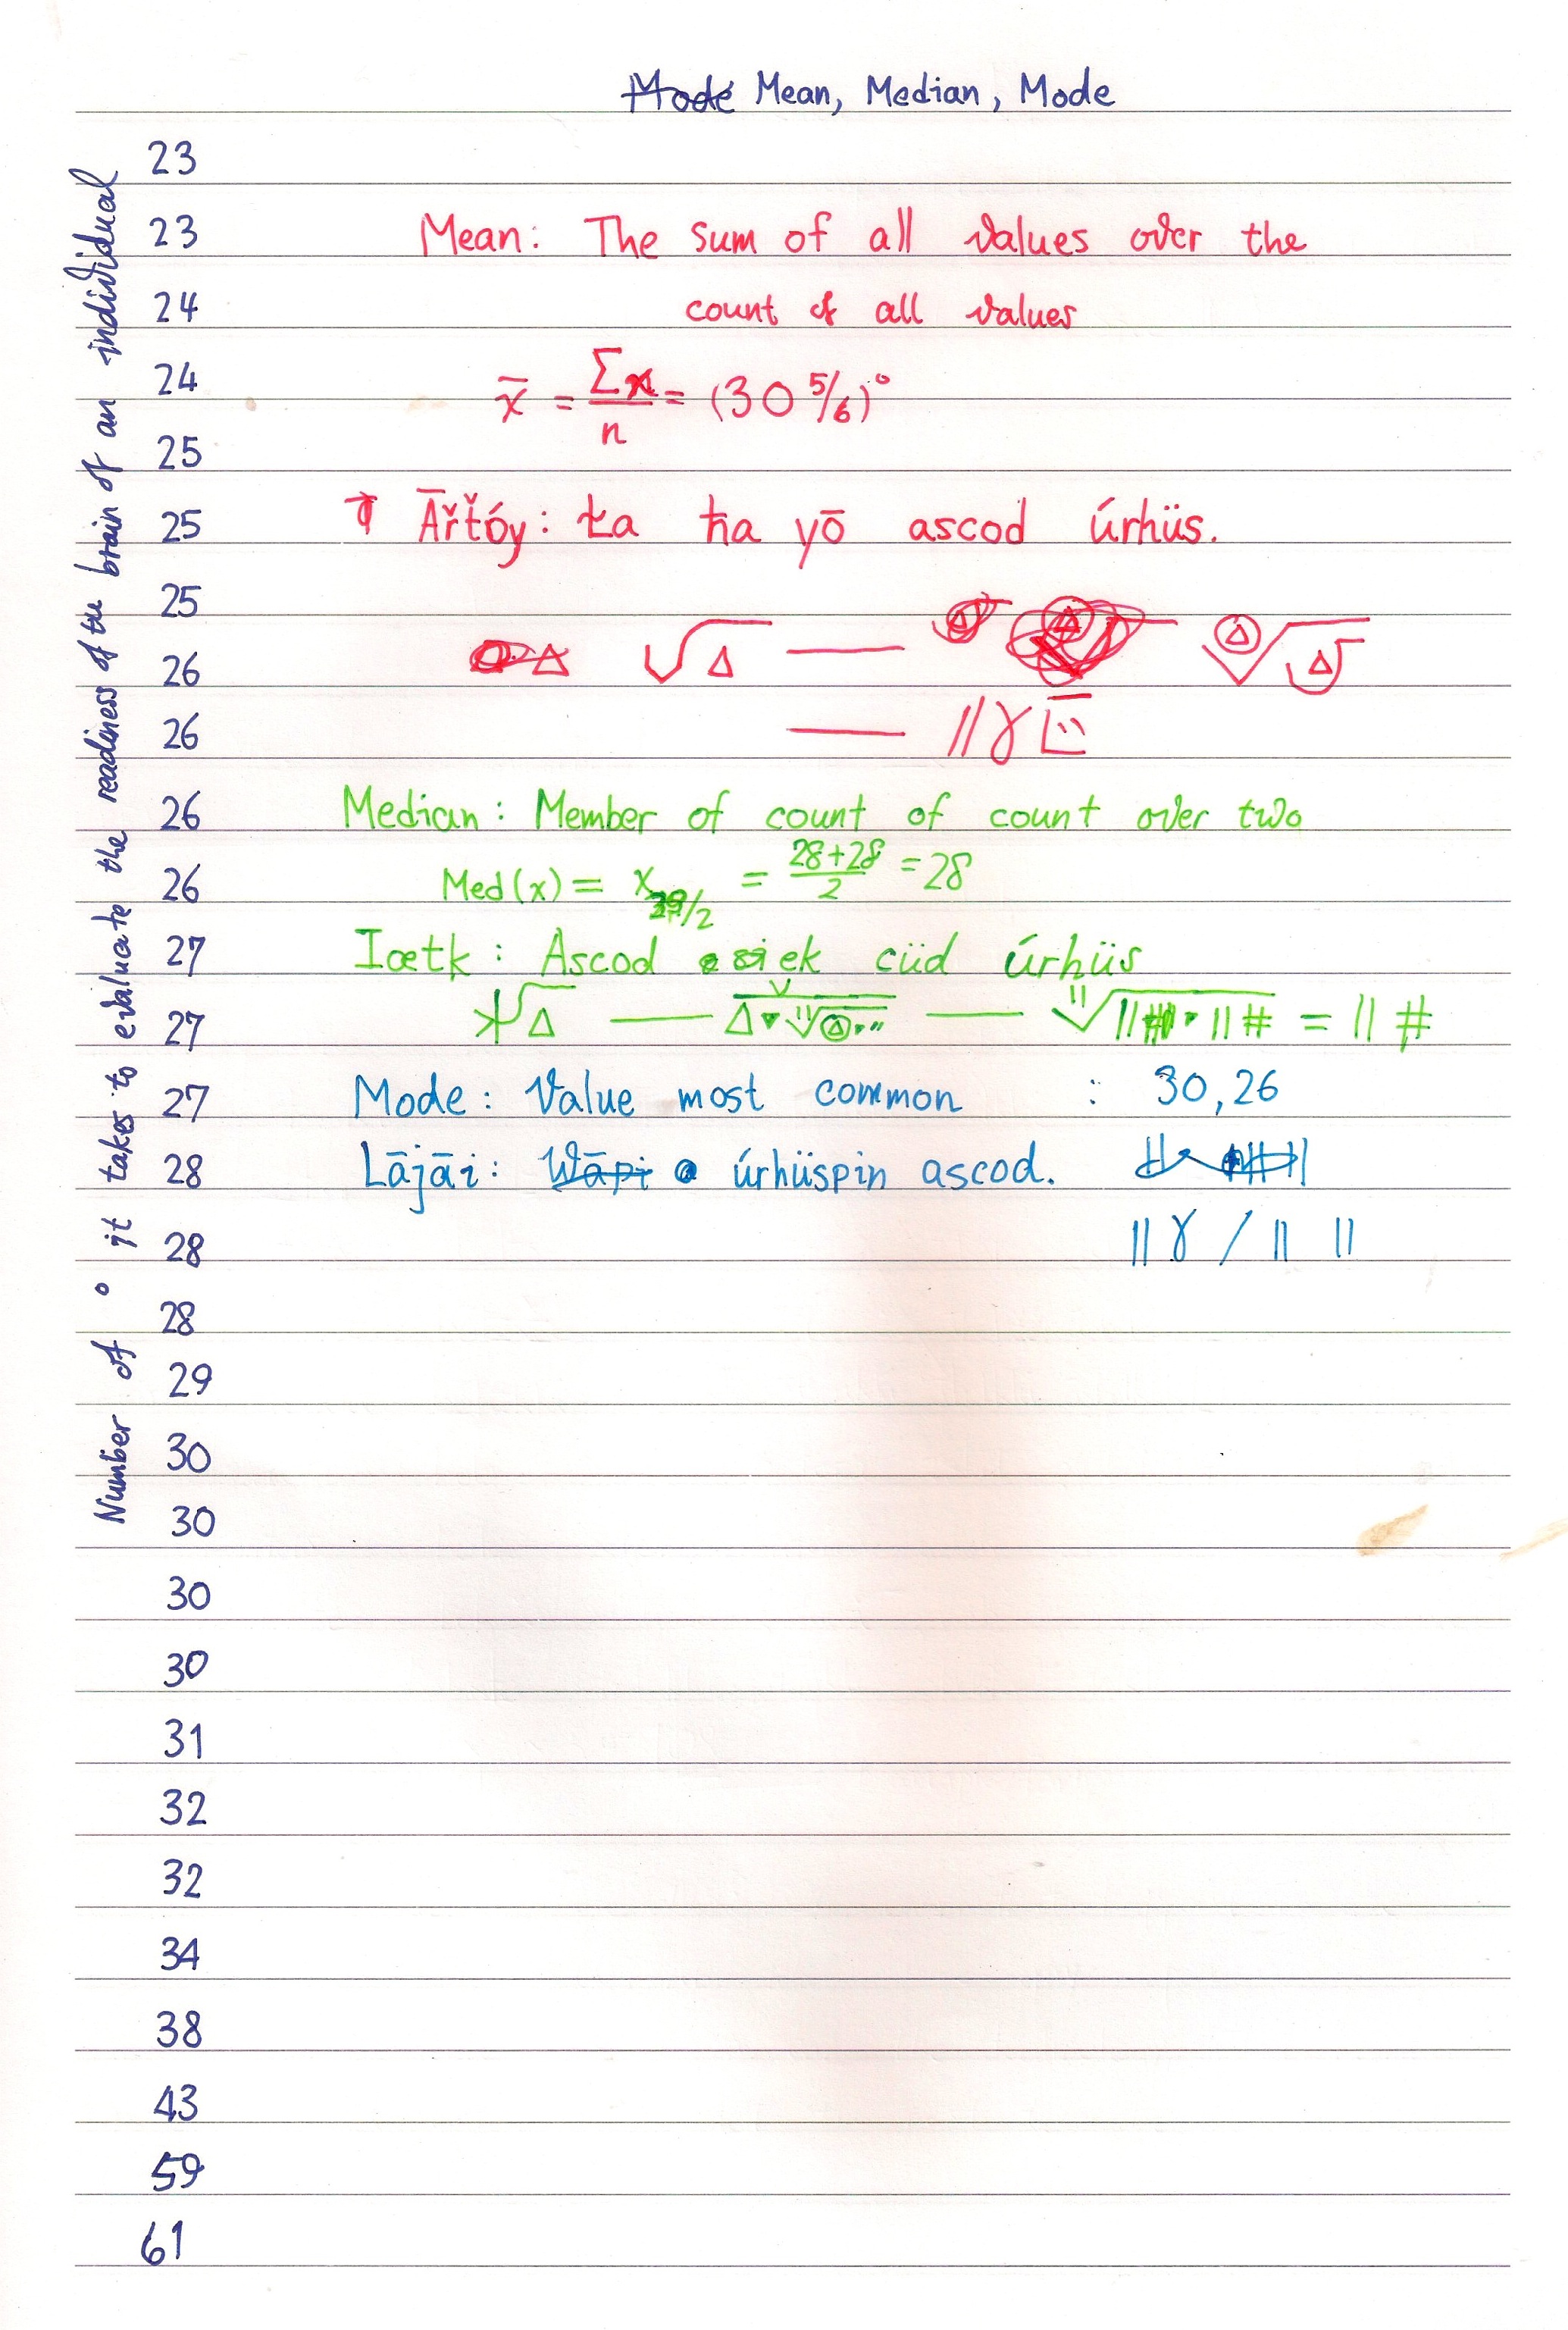 Mode Mean, Median, Mode
Number of ° it takes to evaluate the readiness of the brain of an individual
23
23
24
24
25
25
25
26
26
26
26
27
27
27
28
28
28
29
30
30
30
30
31
32
32
34
38
43
59
61
Mean: The sum of all values over the
count of all values
x̄ = Σx/n = (30 5/6)°
Āřťóy: ŧa ħa yō ascod úrhüs.
Median: Member of count of count over two
Med(x) = x = (28+28)/2 = 28
Iætk: Ascod siek cüd úrhüs
Mode: Value most common : 30, 26
Lājāi: Wāpi úrhüspin ascod.